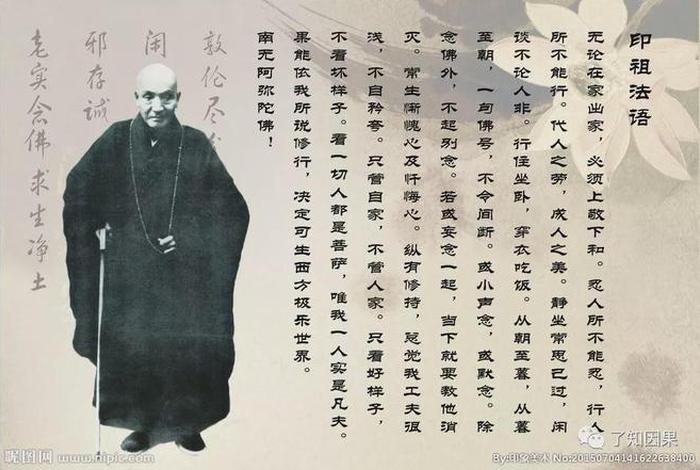 印祖法语
无论在家出家，必须上敬下和。忍人所不能忍，行人
所不能行。代人之劳，成人之美。静坐常思己过，闲
谈不论人非。行住坐卧，穿衣吃饭。从朝至暮，从暮
至朝，一句佛号，不令间断。或小声念，或默念。除
念佛外，不起别念。若或妄念一起，当下就要教他消
灭。常生惭愧心及忏悔心。纵有修持，总觉我工夫很
浅，不自矜夸。只管自家，不管人家。只看好样子，
不看坏样子。看一切人都是菩萨，唯我一人实是凡夫。
果能依我所说修行，决定可生西方极乐世界。
南无阿弥陀佛！
敦伦尽
闲
邪存诚
老实念佛求生净土
昵图网 www.nipic.com
了知因果
By:印象美术 No:20150704141622638400